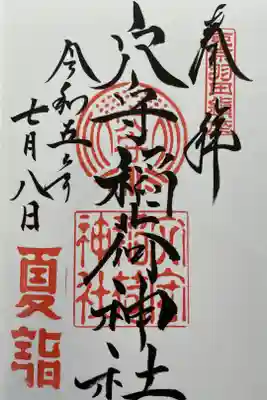 奉拝
穴守稲荷神社
穴守
稲荷
神社
令和五年
七月八日
夏詣